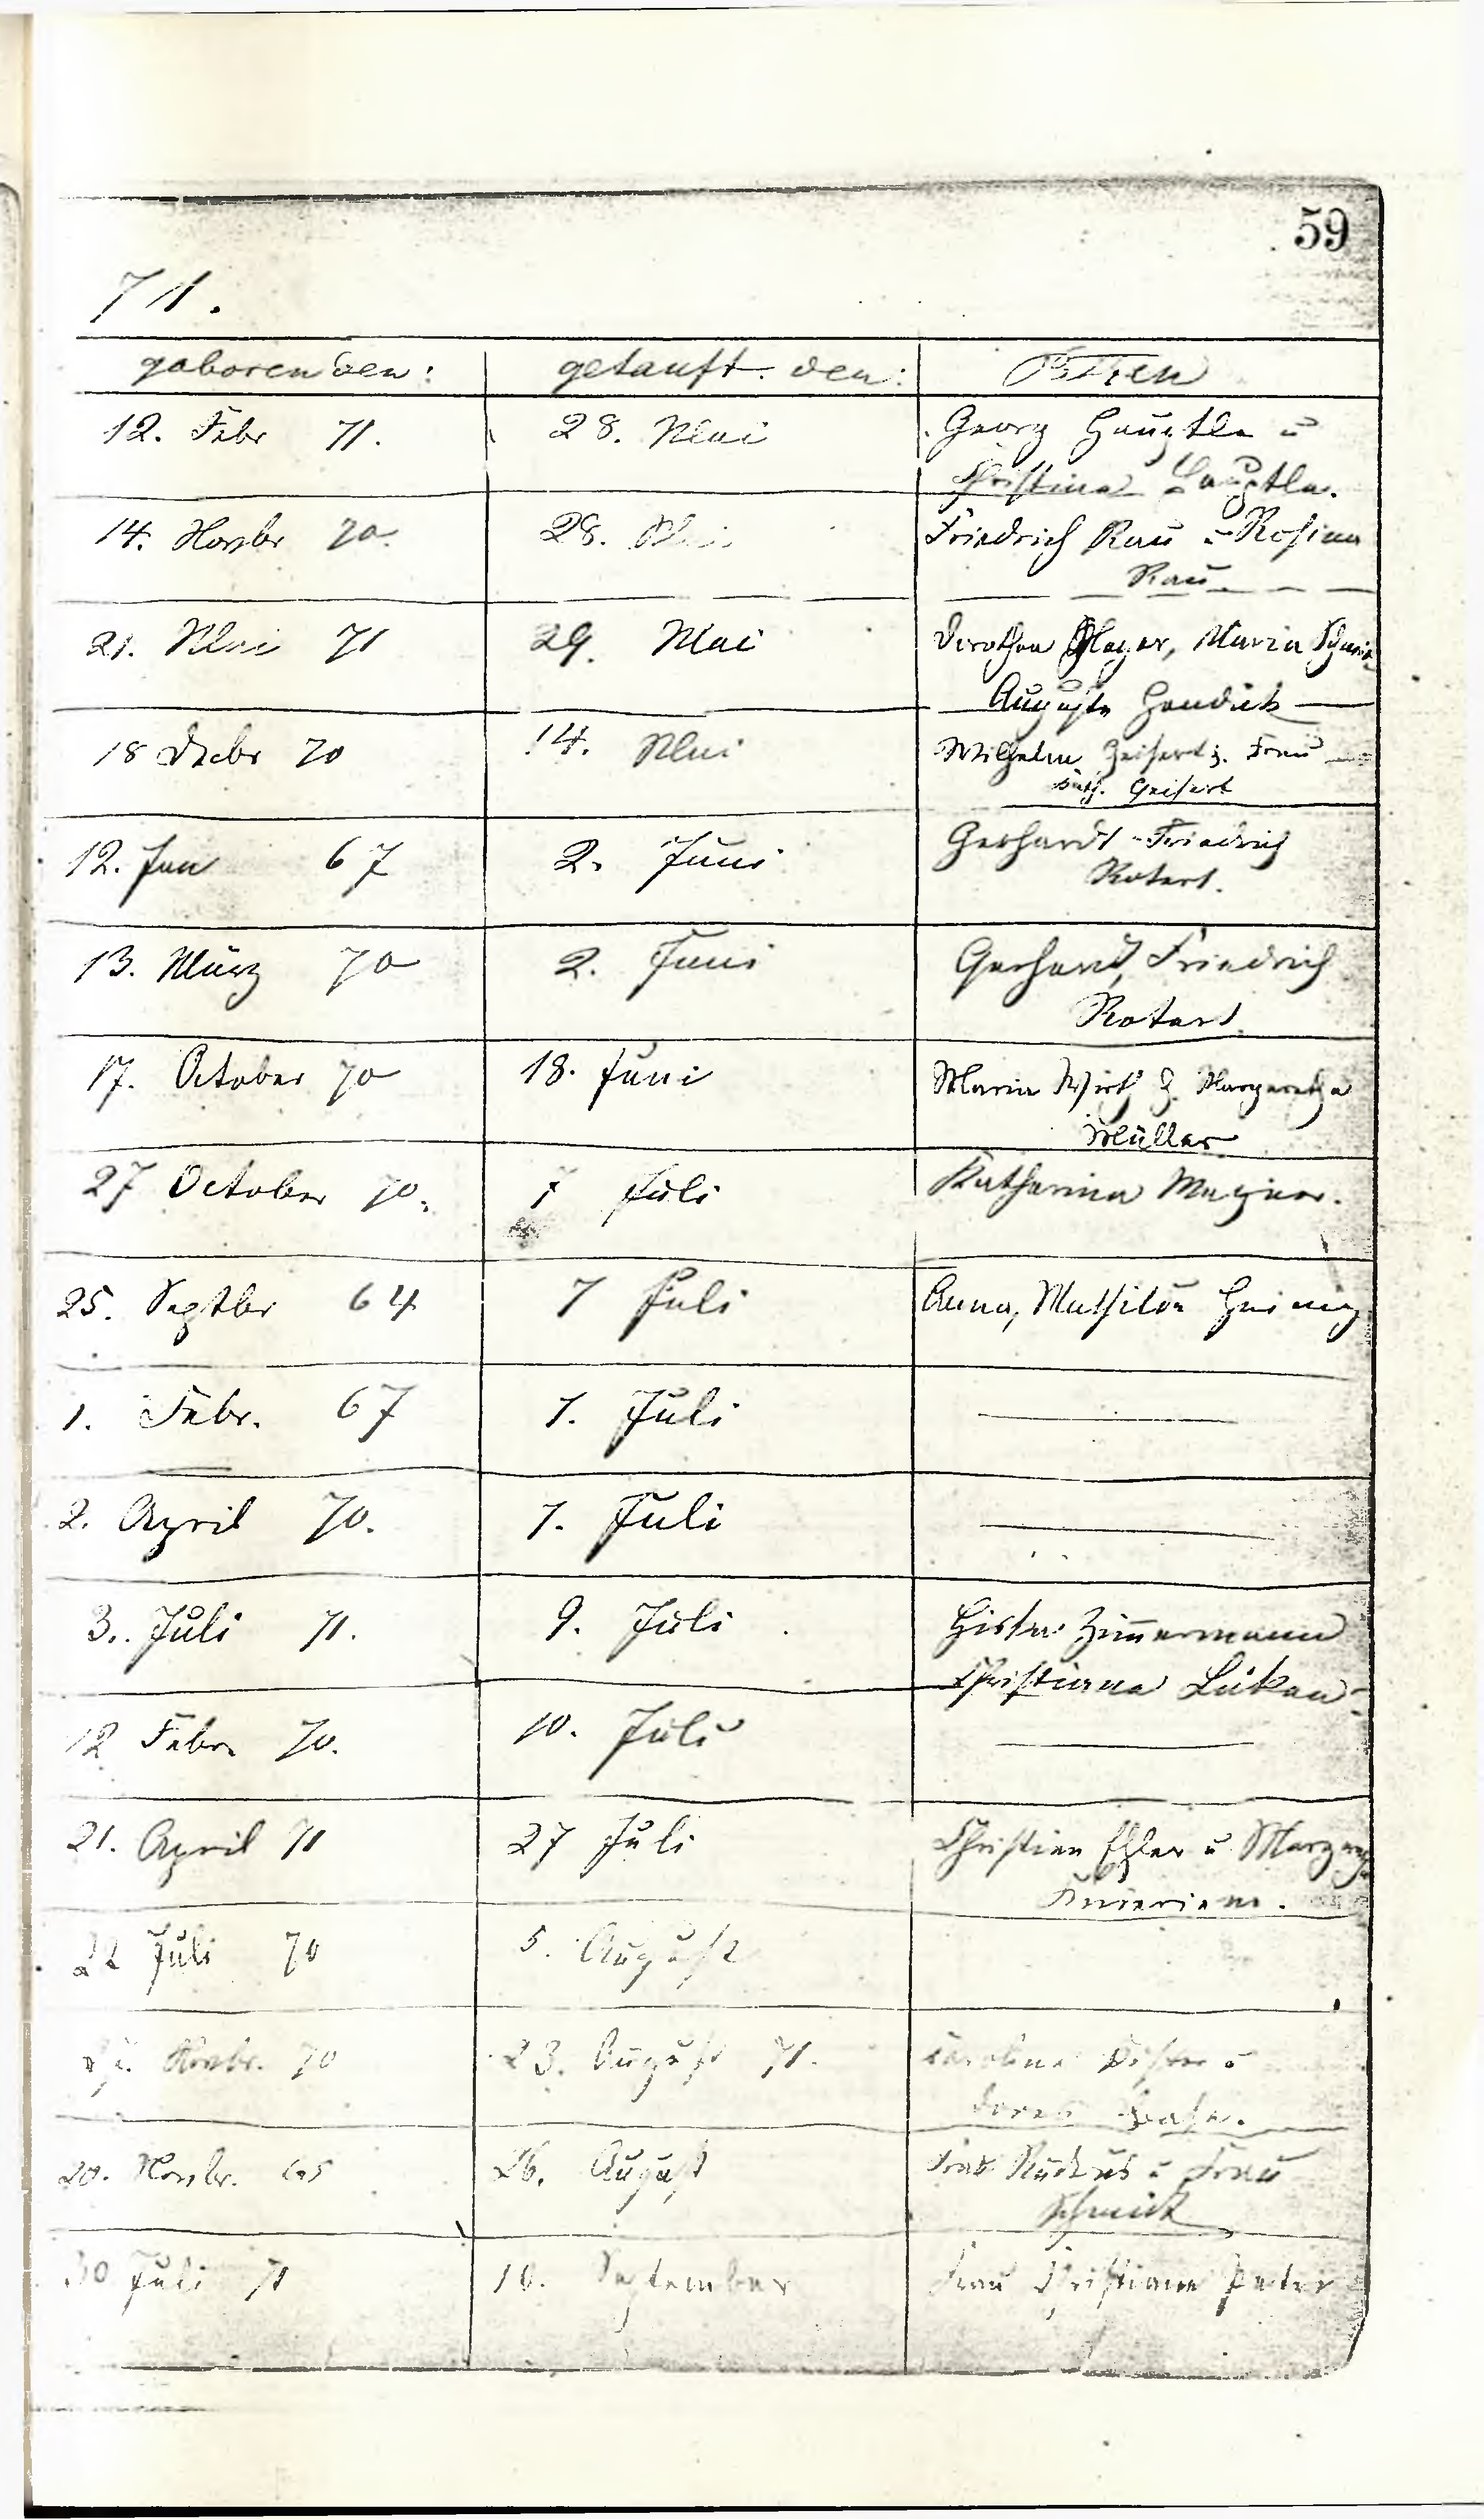 59
71.
geboren den: getauft den: Pathen
12. Febr 71. 28. Mai Georg Hauptle u
Christina Hauptle.
14. Novbr 70. 28. Mai Friedrich Rau u Rosina
Rau
21. Mai 71 29. Mai Dorothea Mayer, Maria
Auguste
18 Decbr 70 14. Mai Wilhelm Geisert u. Frau
Geisert
12. Jan 67 2. Juni Gerhardt Friedrich
Rotert.
13. März 70 2. Juni Gerhard, Friedrich
Rotert
17. October 70 18. Juni Maria Wirth u. Margaretha
Müller
27 October 70. 7 Juli Katharina Wagner.
25. Septbr 64 7 Juli Anna, Mathilde
1. Febr. 67 7. Juli
2. April 70. 7. Juli
3. Juli 71. 9. Juli Zimmermann
Christiana
12 Febr. 70. 10. Juli
21. April 71 27 Juli Christian u
22 Juli 70 5. August
Novbr. 70 23. August 71. Caroline u
20. Novbr. 65 26. August Frau u Frau
30 Juli 71 10. September Frau Christiane Peter